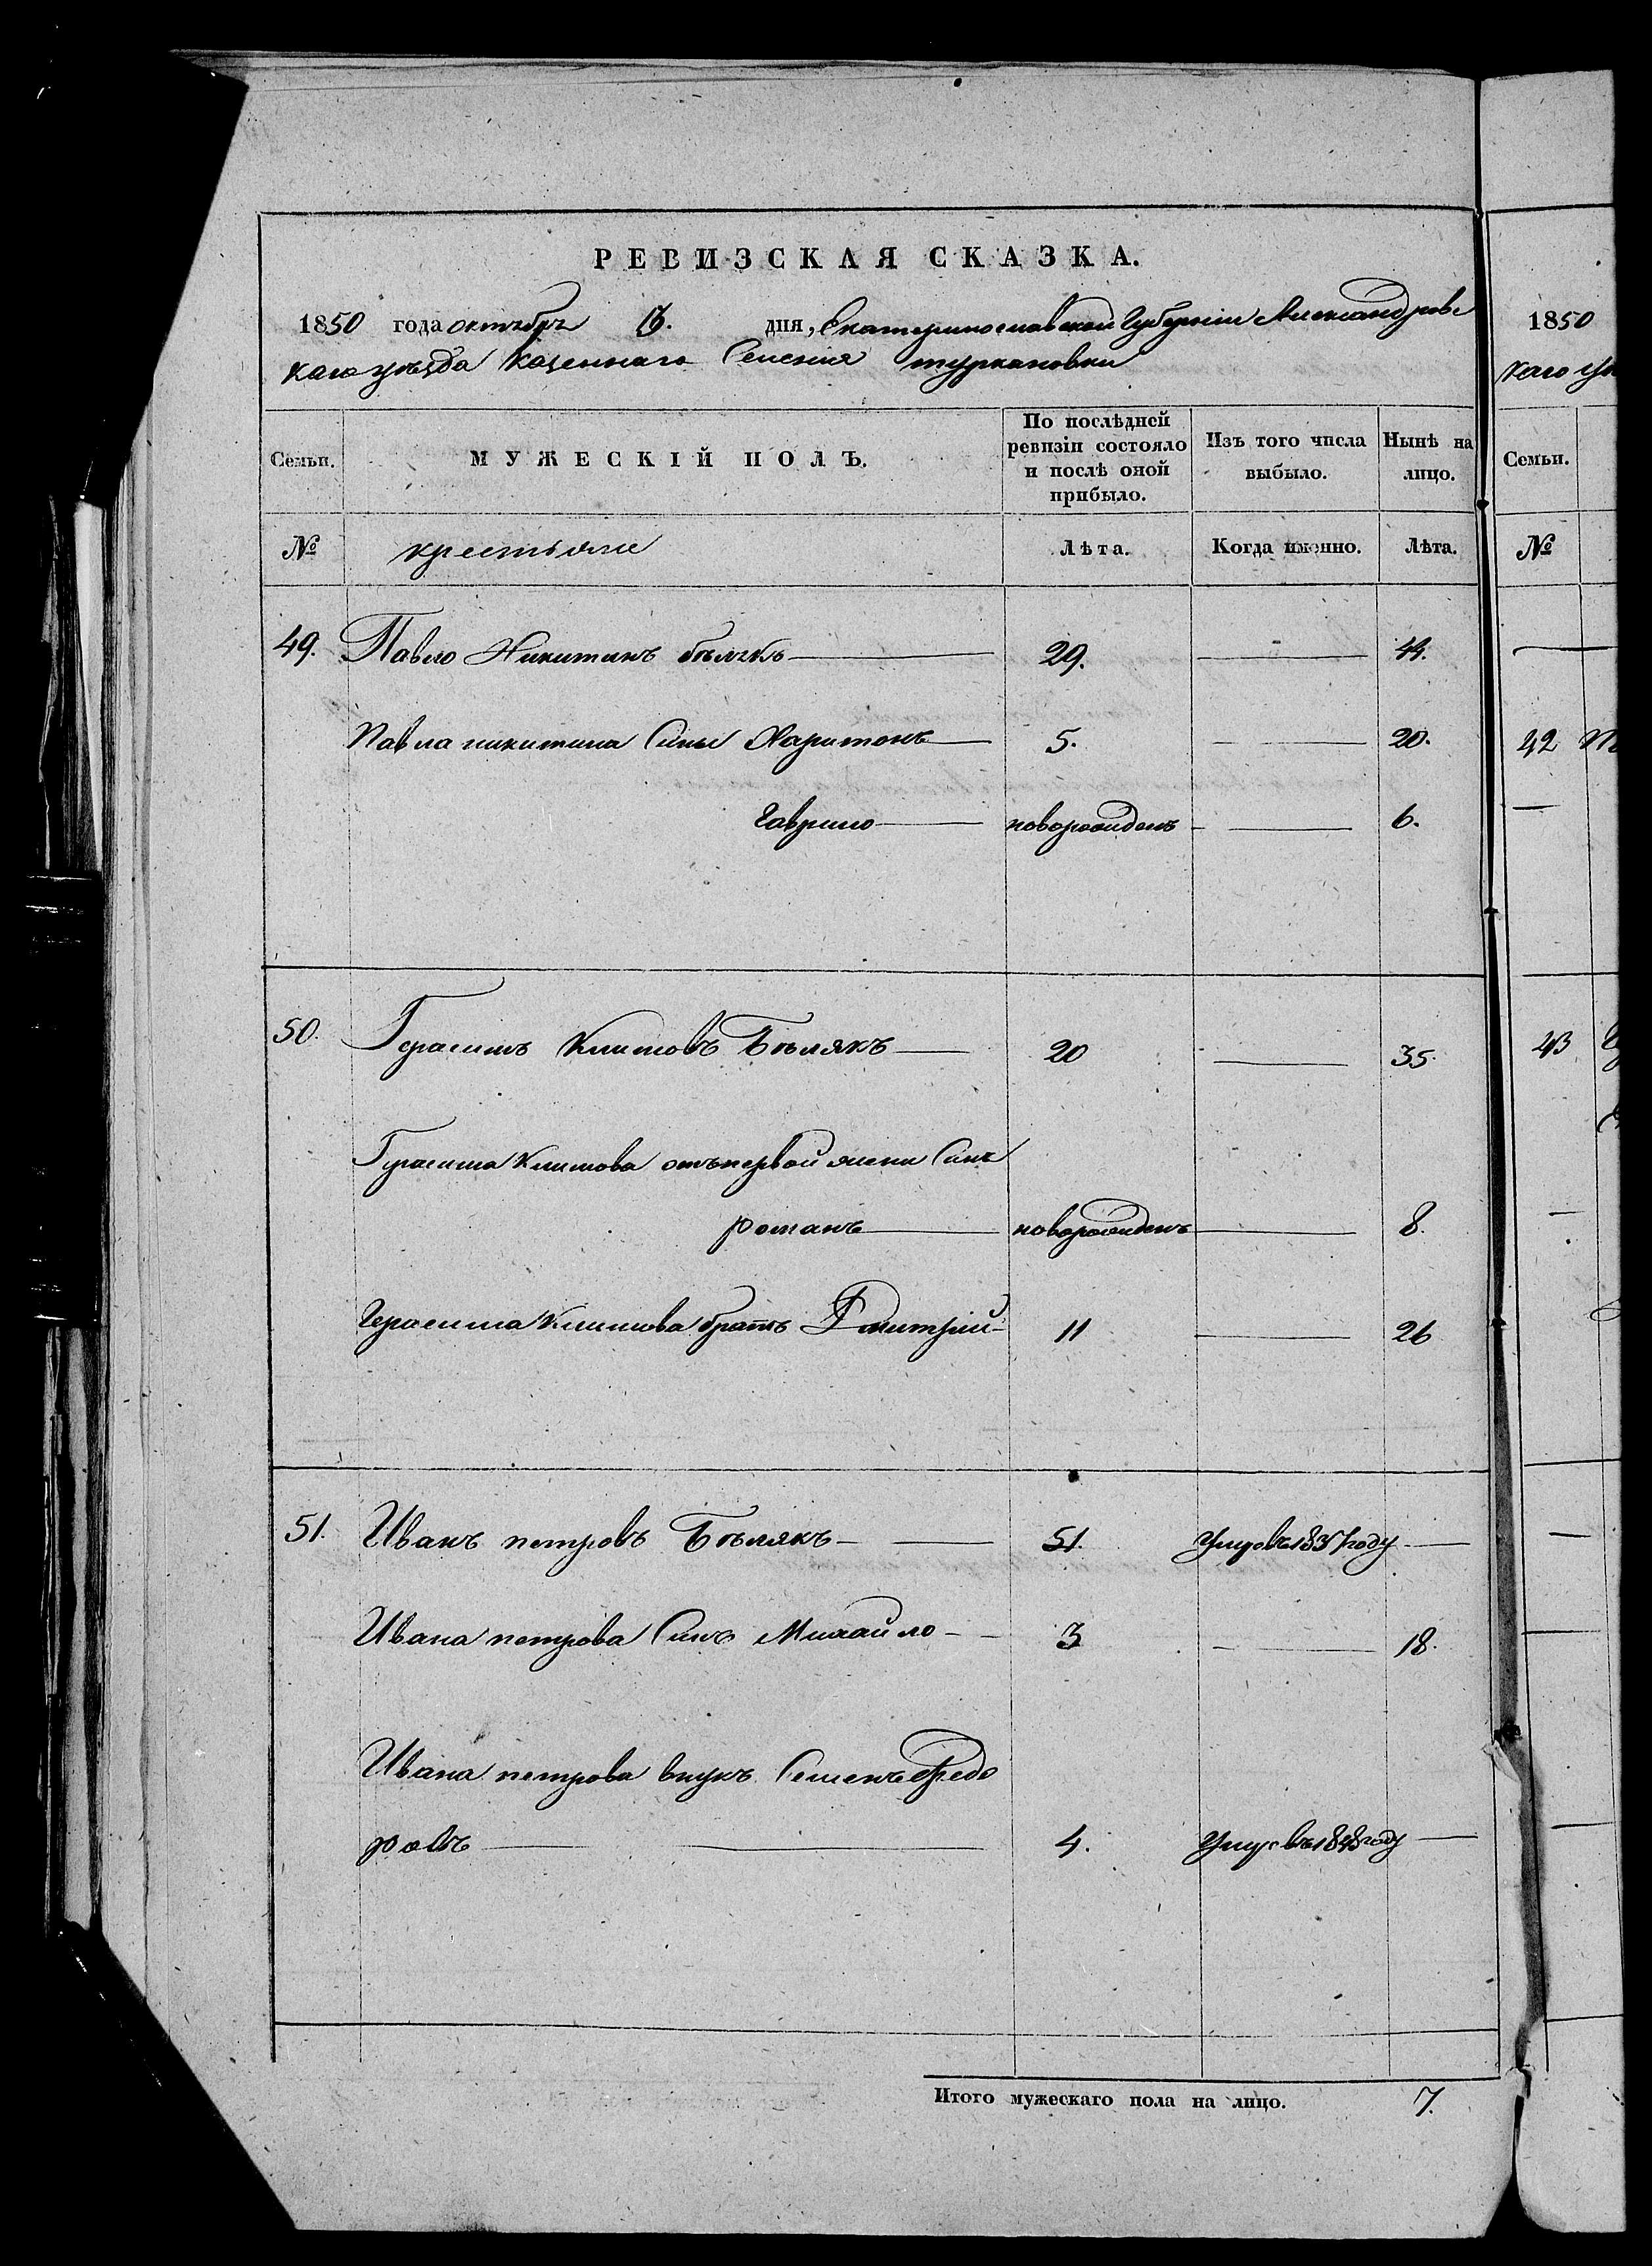 РЕВИЗСКАЯ СКАЗКА.
1850 года октября дня, Екатеринославской Губерніи Александровс
каго уезда Казеннаго Селенія туркановки
Семьи. МУЖЕСКІЙ ПОЛЪ. По послѣдней ревизіи состояло и послѣ оной прибыло. Изъ того числа выбыло. Нынѣ на лицо.
№ крестьяне Лѣта. Когда именно. Лѣта.
49. Павло Никитинъ 29. 44.
Павла никитина Сины Харитонъ 5. 20.
Гаврило новорожденъ 6.
50. Герасимъ Климовъ Бѣлякъ 20 35.
Герасима Климова отъ первой жени Синъ
романъ новорожденъ 8.
Герасима Климова братъ Дмитрій 11 26
51. Иванъ петровъ Бѣлякъ 51. Умеръ въ 1837 году
Ивана петрова Синъ Михайло 3 18.
Ивана петрова внукъ Семенъ Федо
ровъ 4. Умеръ въ 1848 году
Итого мужескаго пола на лицо. 7.
1850
каго
Семьи.
№
42
43